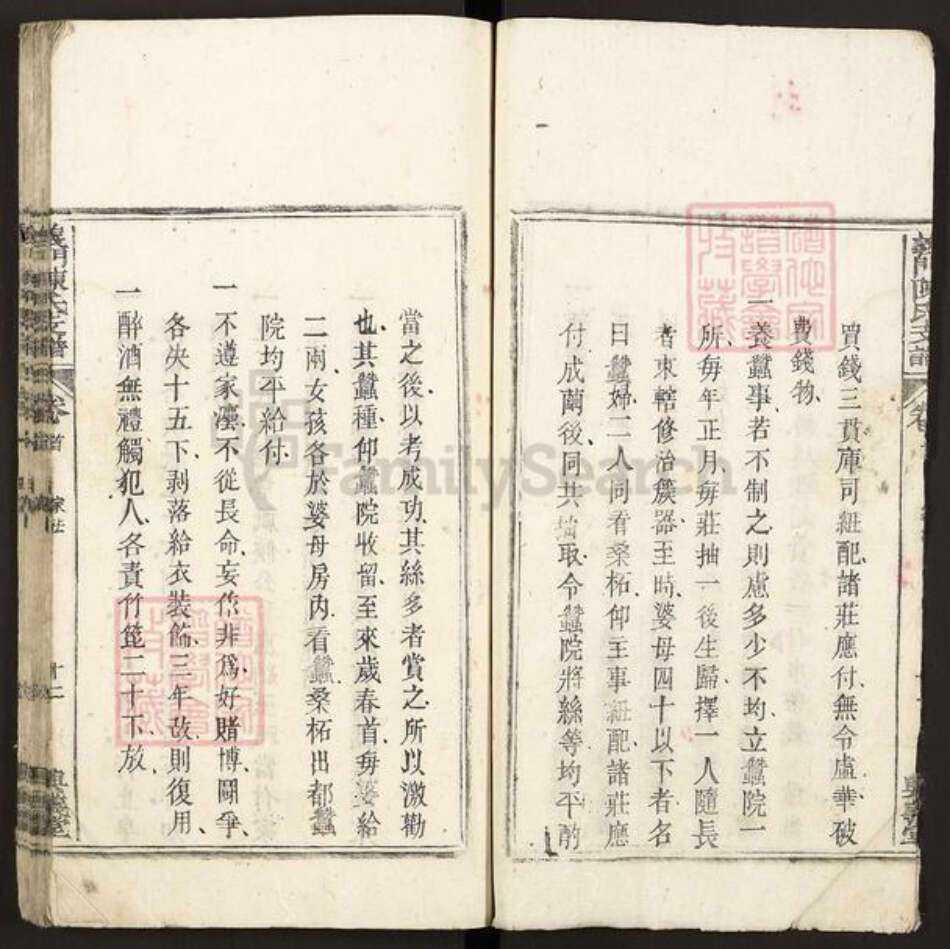 買錢三貫庫司紐配諸莊應付無令虛華破
費錢物
一養蠶事若不制之則慮多少不均立蠶院一
所每年正月每莊抽一後生歸擇一人隨長
者東轄修治簇器至時婆母四十以下者名
曰蠶婦二人同看桑柘仰主事紐配諸莊應
付成繭後同共抽取令蠶院將絲等均平酌
當之後以考成功其絲多者賞之所以激勸
也其蠶種仰蠶院收留至來歲春首每婆給
二兩女孩各於婆母房內看蠶桑柘出都蠶
院均平給付
一不遵家法不從長命妄作非為好賭博鬪爭
各決十五下剥落給衣裝飾三年改則復用
一醉酒無禮觸犯人各責竹箆二十下放
義門陳氏支譜
卷首
家法
十二
FamilySearch